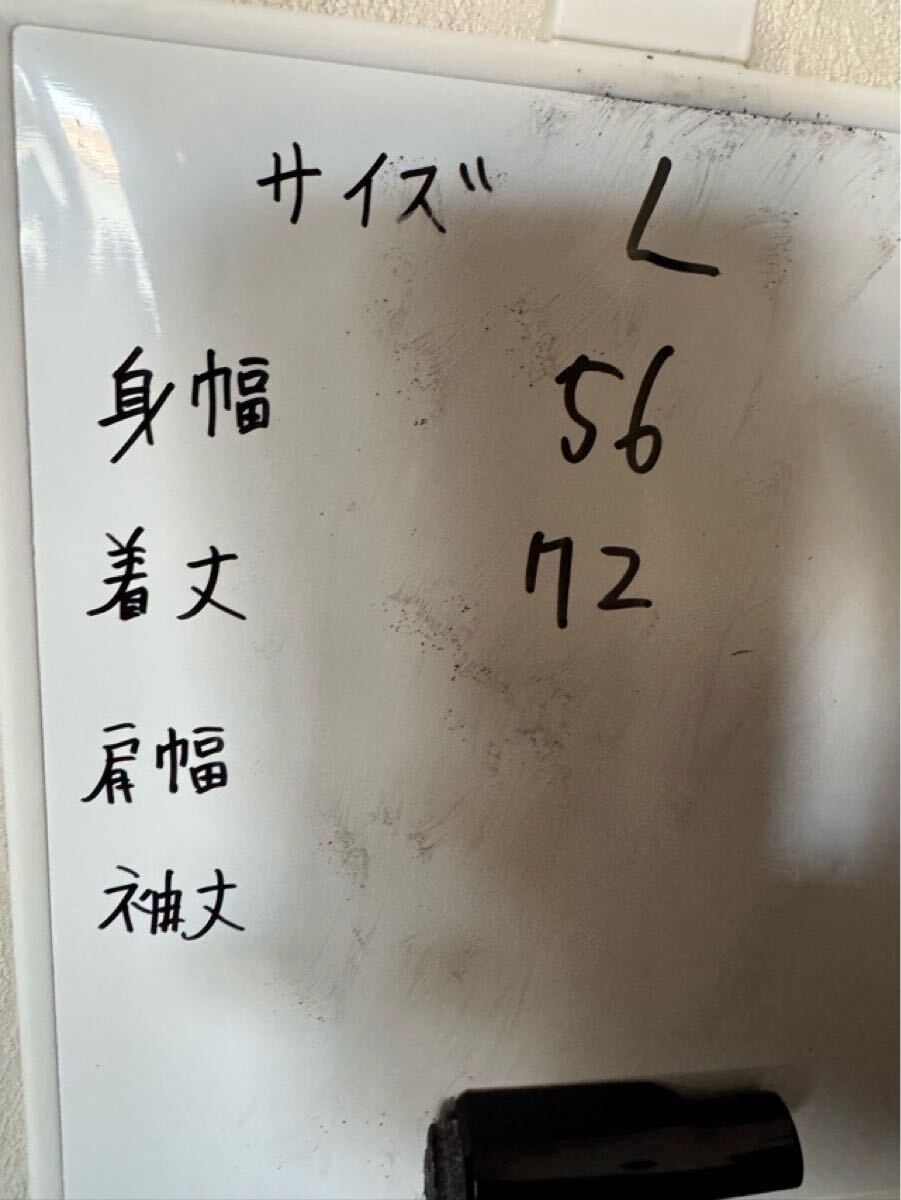 サイズ L
身幅 56
着丈 72
肩幅
袖丈